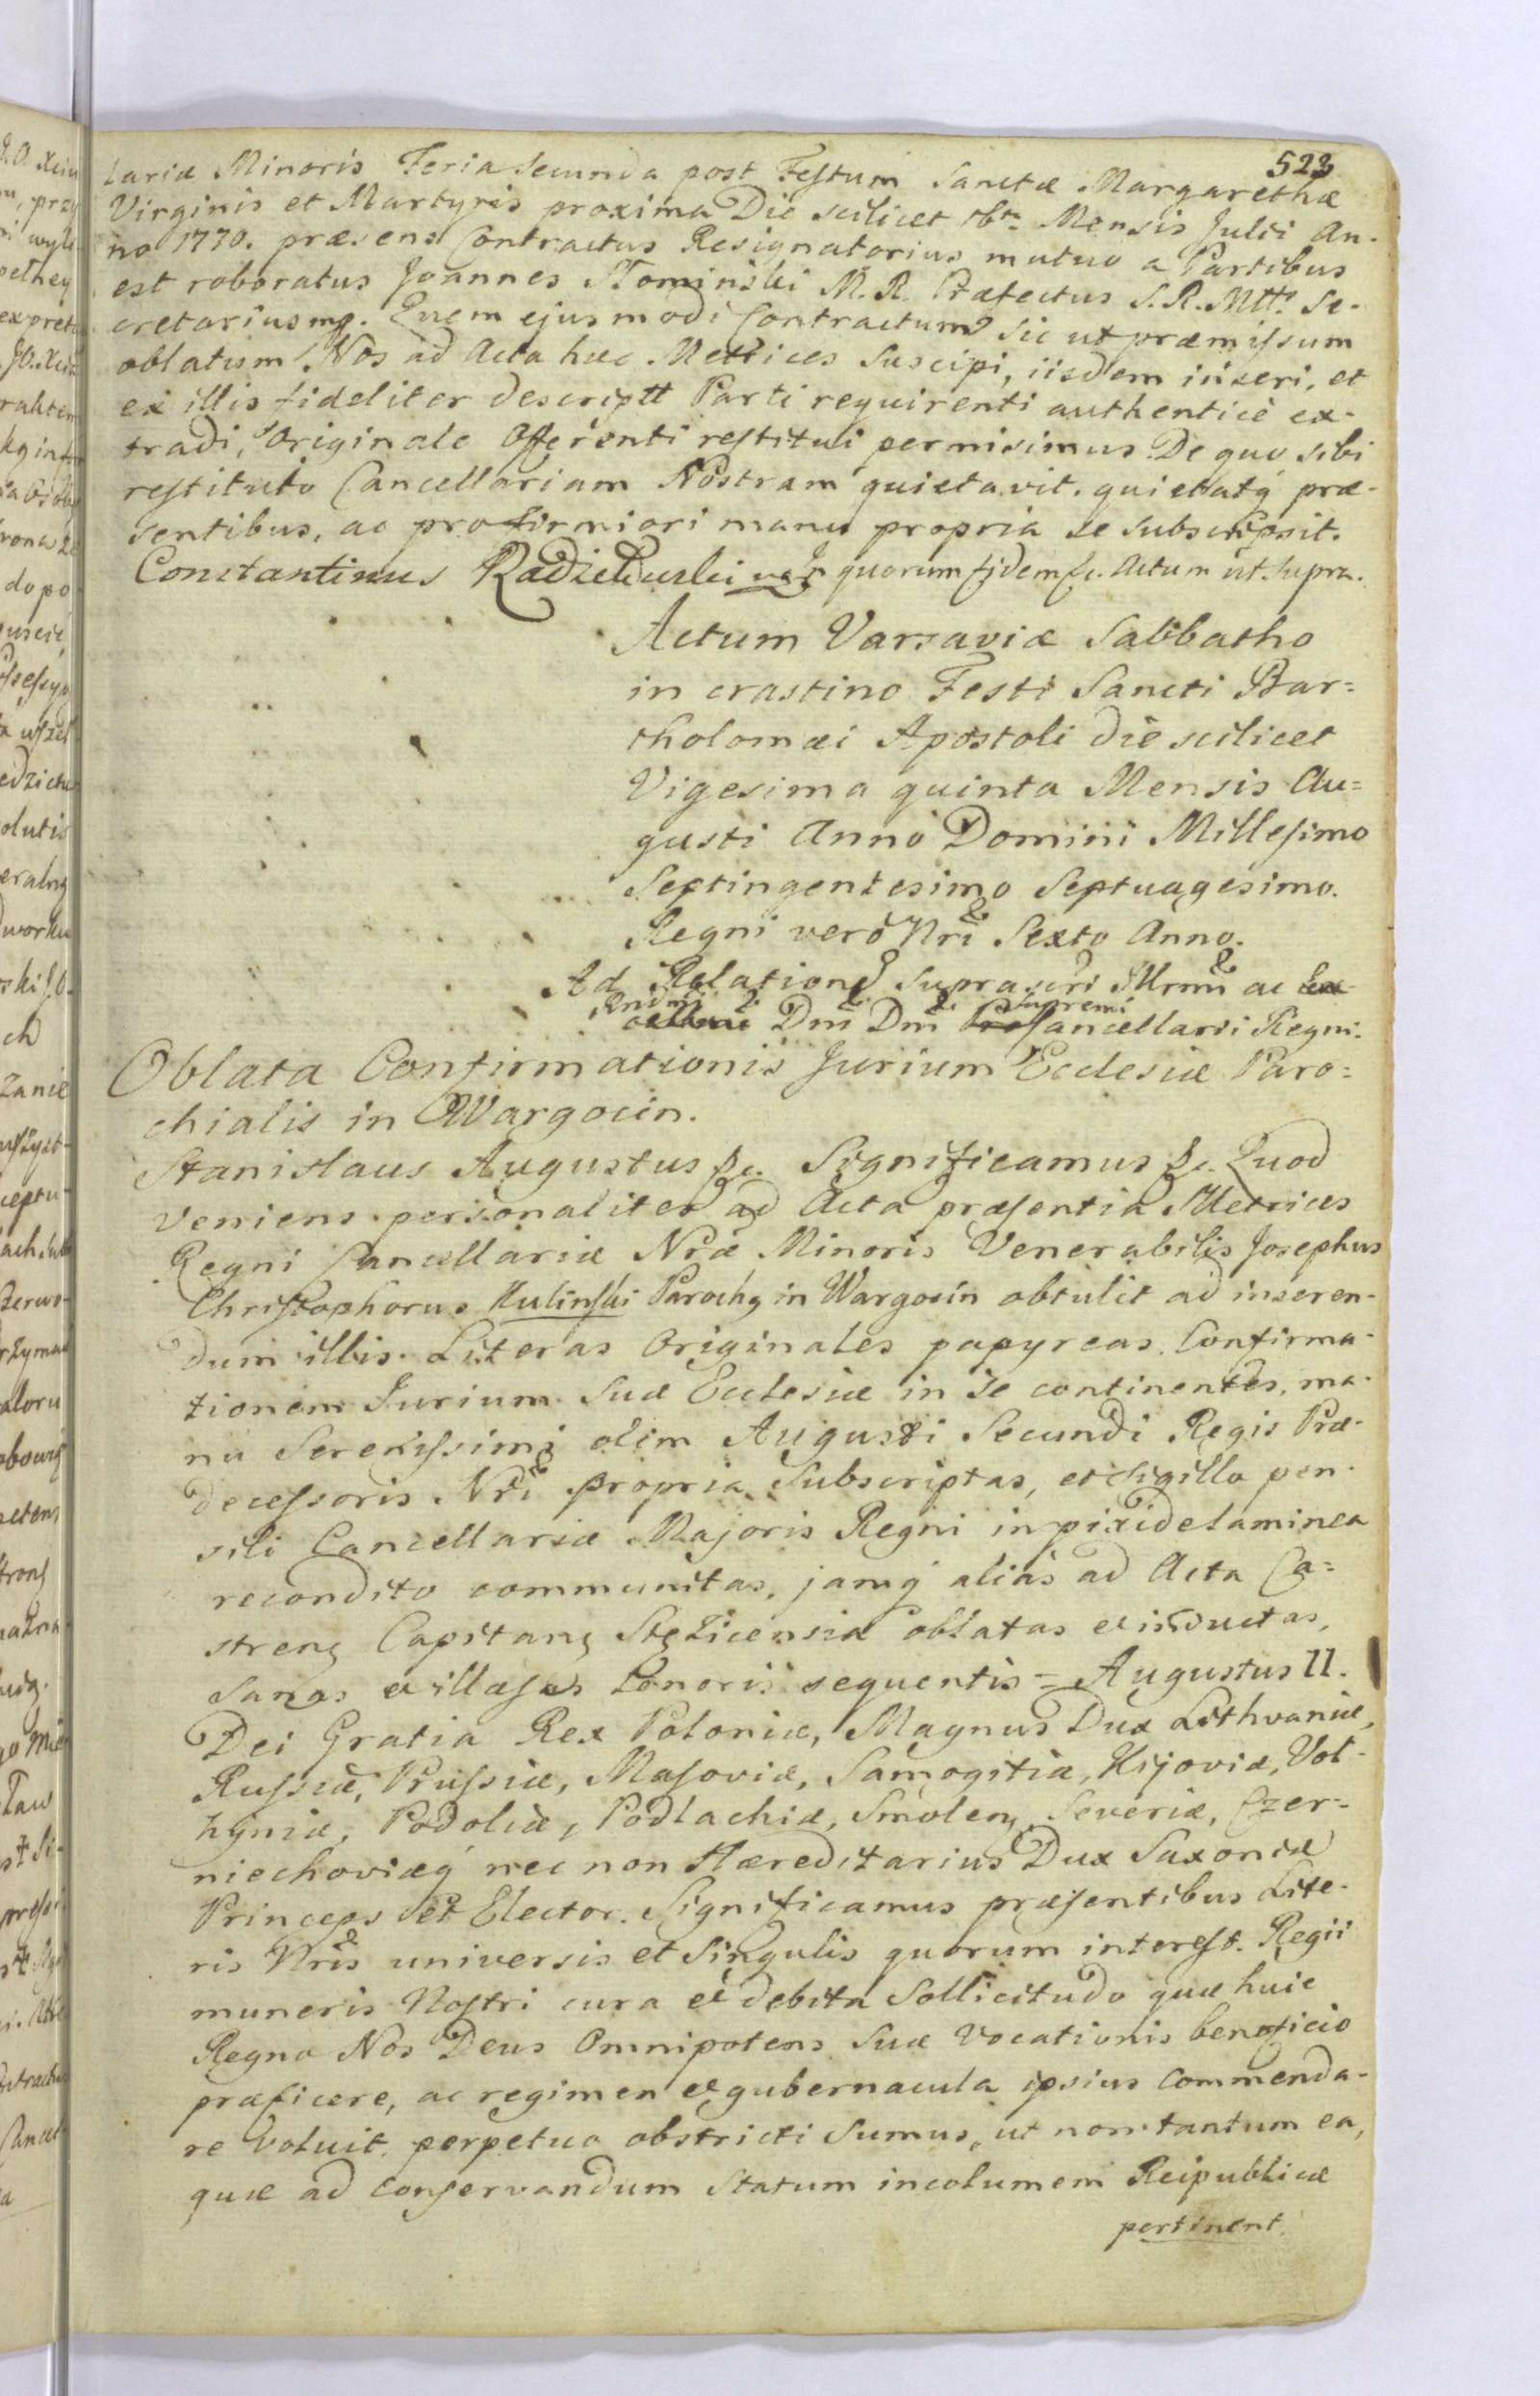 523
lariæ Minoris Feria Secunda post Festum Sanctæ Margarethæ
Virginis et Martyris proxima Die scilicet Mensis Julii An-
no 1770. præsens Contractus Resignatorius mutuo a Partibus
est roboratus Joannes Słominski M. R. Præfectus S. R. Mtt. Se-
cretarius mp. Quem ejusmodi Contractum sic ut præmissum
oblatum Nos ad Acta hæc Metrices Suscipi, iisdem inseri, et
ex illis fideliter descriptt Parti requirenti authentice ex-
tradi, Originale Offerenti restitui permisimus. De quo sibi
restituto Cancellariam Nostram quietavit. quietatq præ-
sentibus, ac pro firmiori manu propria se subscripsit.
Constantinus quorum fidem &c. Actum ut supra.
Actum Varsaviæ Sabbatho
in crastino Festi Sancti Bar=
tholomæi Apostoli die scilicet
Vigesima quinta Mensis Au=
gusti Anno Domini Millesimo
Septingentesimo Septuagesimo.
Regni vero Nri Sexto Anno.
Ad Relatione Suprascri Illrmi ac
Supremi
Dni Dni Cancellarii Regni.
Oblata Confirmationis Jurium Ecclesiæ Paro=
chialis in Wargocin.
Stanislaus Augustus &c. Significamus &c. Quod
veniens personaliter ad Acta præsentia Metrices
Regni Cancellariæ Nræ Minoris Venerabilis Josephus
Christophorus Kulinski Parochq in Wargocin obtulit ad inseren-
dum illis Literas Originales papyreas Confirma-
tionem Jurium Suæ Ecclesiæ in se continentes, ma-
nu Serenissimi olim Augusti Secundi Regis Præ-
decessoris Nri propria Subscriptas, et sigillo pen-
sili Cancellariæ Majoris Regni in pixide laminea
recondito communitas, jamq alias ad Acta Ca=
streng Capitang Stęzicensia oblatas et inductas,
Sanas et illæsas tenoris sequentis = Augustus II.
Dei Gratia Rex Poloniæ, Magnus Dux Lithvaniæ,
Russiæ, Prussiæ, Masoviæ, Samogitiæ, Kijoviæ, Vol-
hyniæ, Podoliæ, Podlachiæ, Smolenq, Severiæ, Czer-
niechoviæq nec non Hæreditarius Dux Saxoniæ
Princeps et Elector. Significamus præsentibus Lite-
ris Nris universis et Singulis quorum interest. Regii
muneris Nostri cura et debita Sollicitudo quæ huic
Regno Nos Deus Omnipotens Suæ Vocationis beneficio
præficere, ac regimen et gubernacula ipsius Commenda-
re Voluit, perpetuo obstricti Sumus, ut non tantum ea,
quæ ad conservandum Statum incolumem Reipublicæ
pertinent.